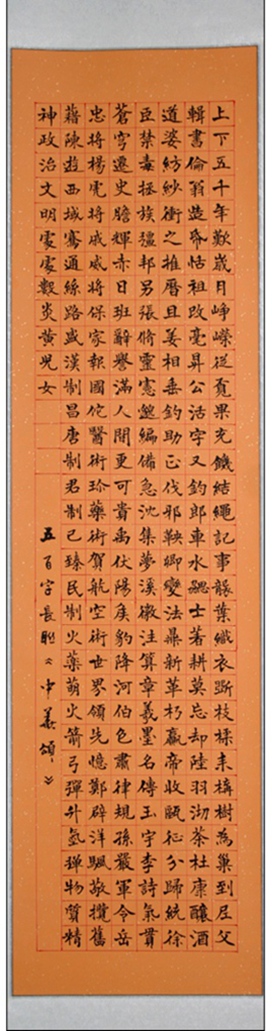 上下五千年歎歲月崢嶸從覓果充饑結繩記事綴葉織衣斲枝揉耒構樹為巢到后父
輯書倫翁造帋恬祖改毫昇公活字又鈞郎車水勰士著耕莫忘却陸羽沏茶杜康釀酒
道婆紡紗衝之推曆且姜相垂釣助正伐邪鞅卿變法鼎新革朽嬴帝收甌征分歸統徐
臣禁毒拯族彊邦另張脩靈憲邈編備急沈集夢溪徽注算章羲墨名傳玉宇李詩氣貫
蒼穹遷史膽輝赤日班辭譽滿人間更可貴禹伏陽矦豹降河伯色肅律規孫嚴軍令岳
忠將楊虎將戚威將保家報國佗醫術珍藥術賀航空術世界領先憶鄭辟洋颿敬攬舊
藉陳遊西域騫通絲路盛漢制昌唐制君制已臻民制火藥萌火箭弓彈升氫彈物質精
神政治文明處處觀炎黃兒女
五百字長聯《中華頌》